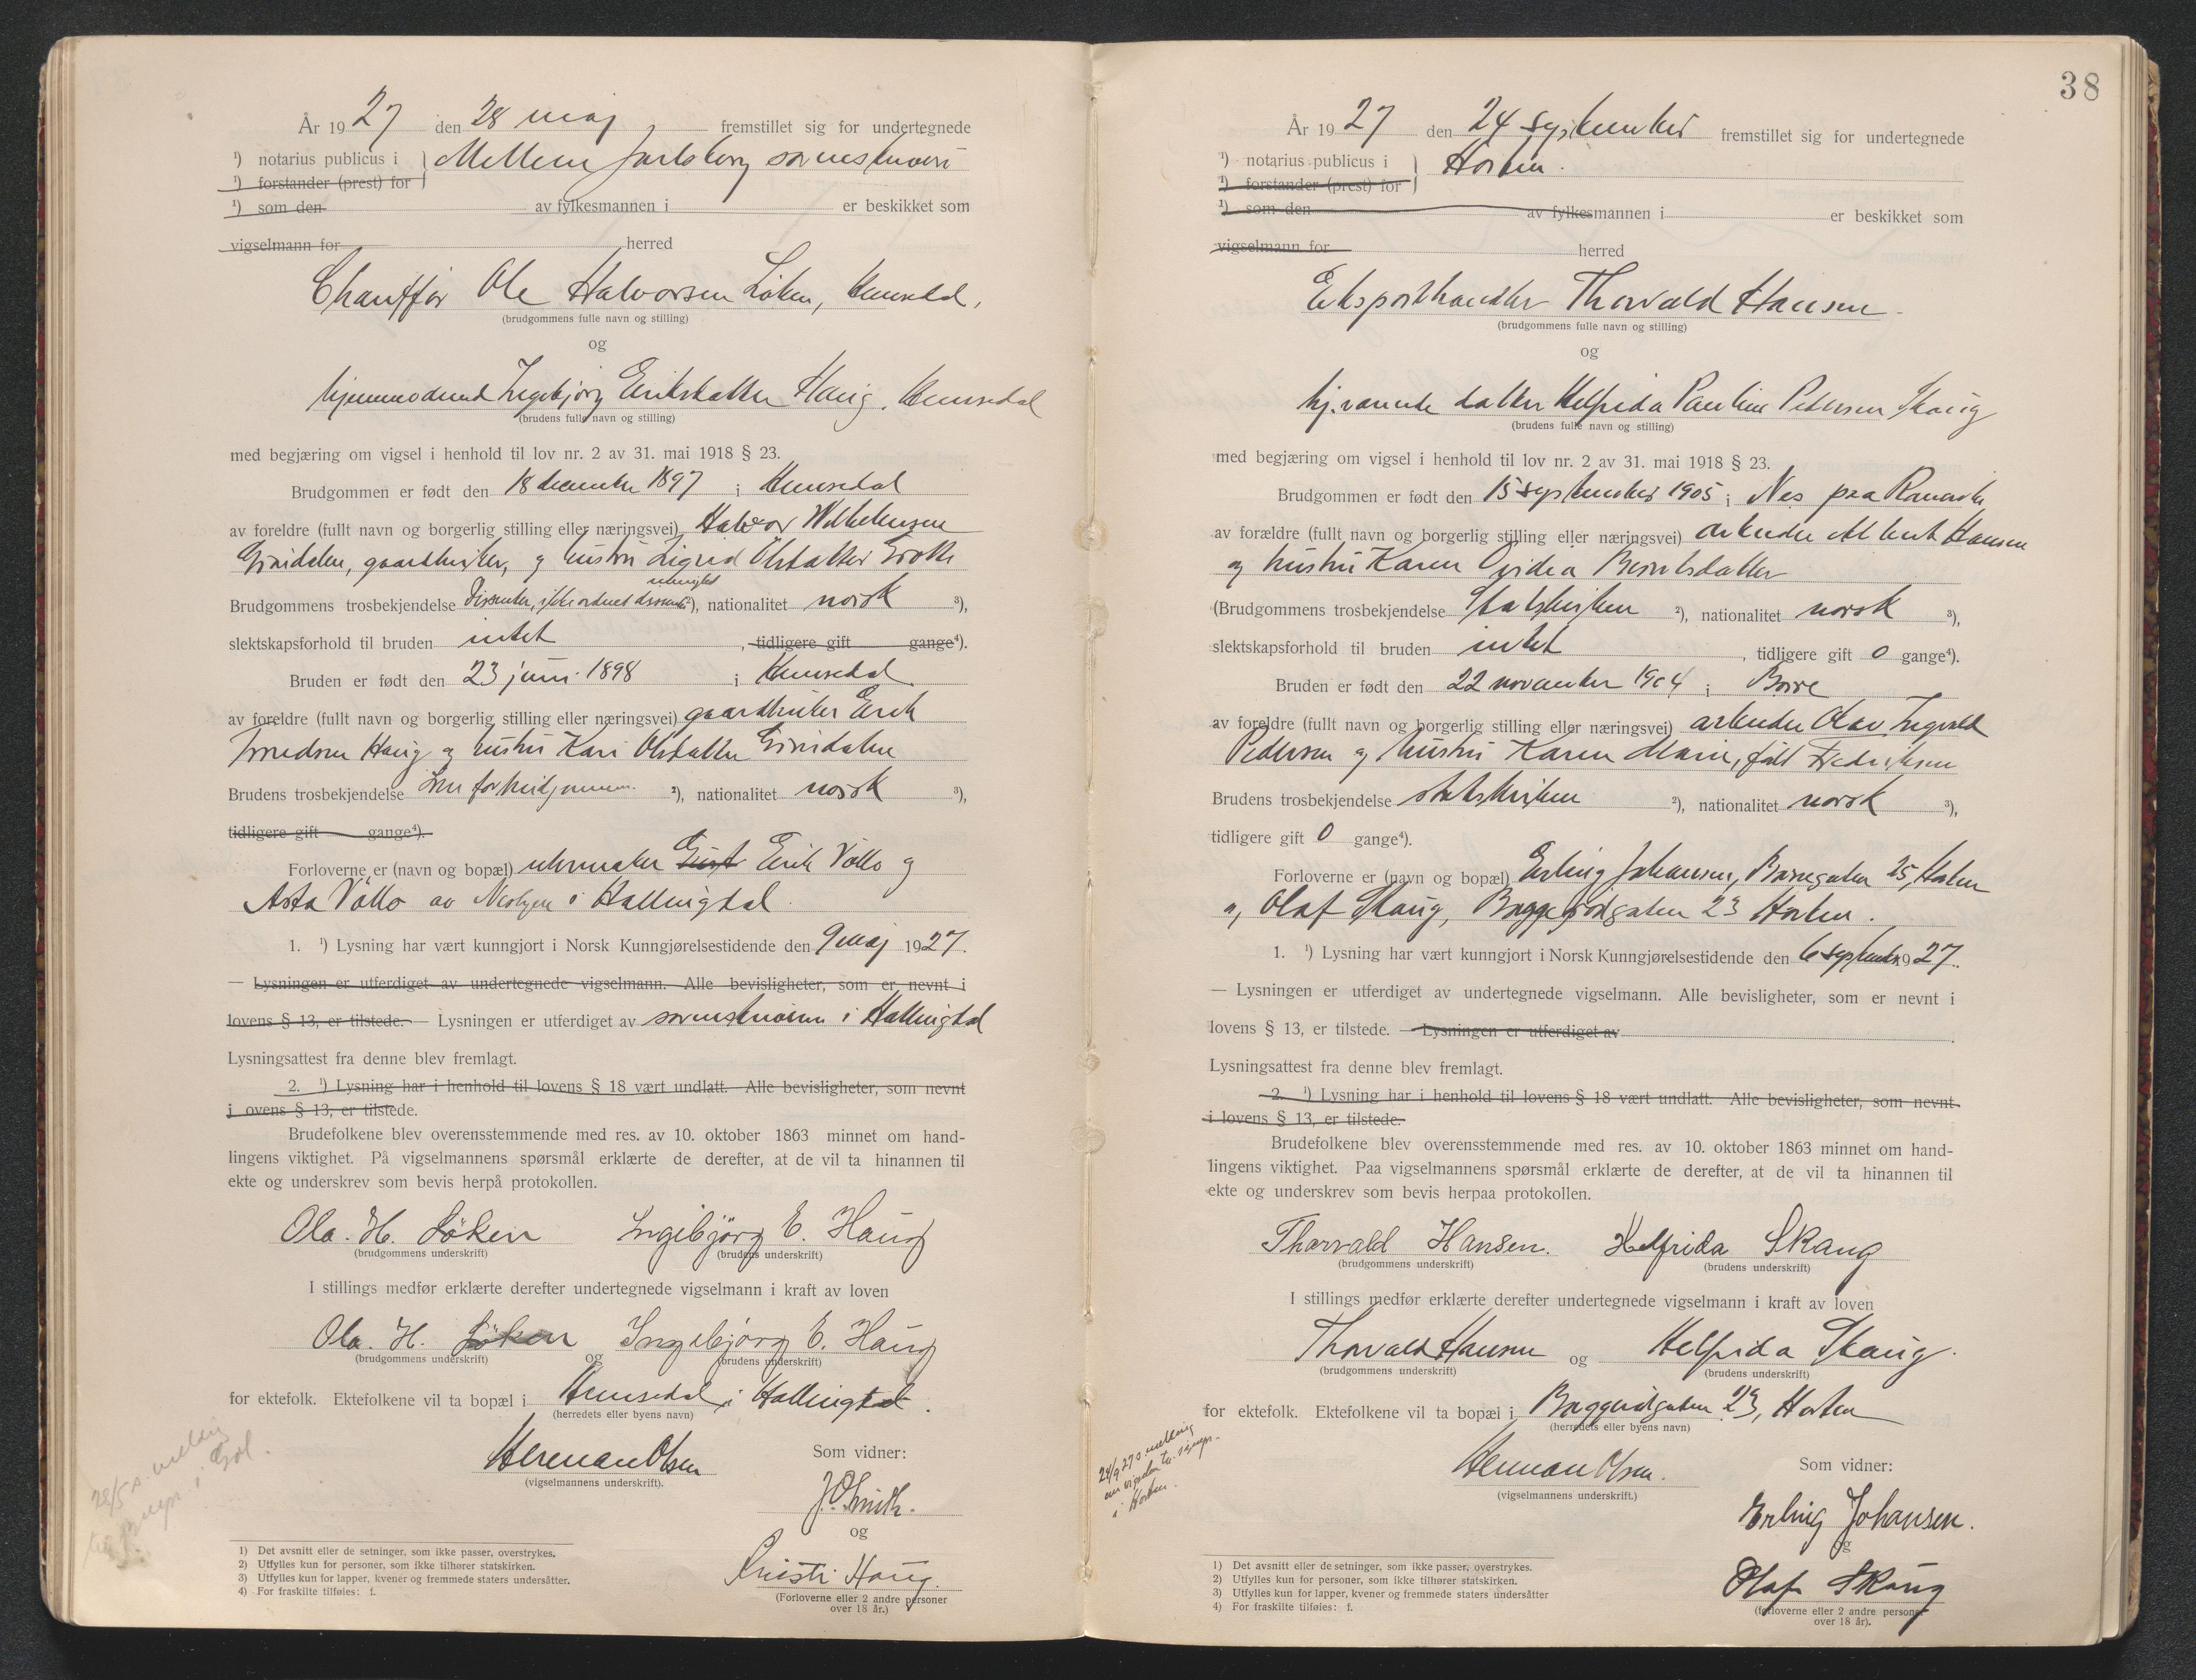 År 1927 den 28 maj fremstillet sig for undertegnede
¹) notarius publicus i } Mellem Jarlsberg sorenskriveri
¹) forstander (prest) for
¹) som den av fylkesmannen i er beskikket som
vigselmann for herred
Chauffør Ole Halvorsen Løken, Hemsedal.
(brudgommens fulle navn og stilling)
og
Ingebjørg Eriksdatter Haug, Hemsedal
(brudens fulle navn og stilling)
med begjæring om vigsel i henhold til lov nr. 2 av 31. mai 1918 § 23.
Brudgommen er født den 18 december 1897 i Hemsedal
av foreldre (fullt navn og borgerlig stilling eller næringsvei) Halvor Wilhelmsen
gaardbruker, og hustru Sigrid Olsdatter
Brudgommens trosbekjendelse Dissenter, ikke ordnet ²), nationalitet norsk ³),
slektskapsforhold til bruden intet , tidligere gift gange⁴).
Bruden er født den 23 juni 1898 i Hemsedal
av foreldre (fullt navn og borgerlig stilling eller næringsvei) gaardbruker Erik
Haug og hustru Kari Olsdatter
Brudens trosbekjendelse som for brudgommen. ²), nationalitet norsk ³),
tidligere gift gange⁴).
Forloverne er (navn og bopæl) uhrmaker Erik Vøllo og
Asta Vøllo av Nesbyen i Hallingdal.
1. ¹) Lysning har vært kunngjort i Norsk Kunngjørelsestidende den 9 maj 1927.
— Lysningen er utferdiget av undertegnede vigselmann. Alle bevisligheter, som er nevnt i
lovens § 13, er tilstede. — Lysningen er utferdiget av sorenskriveren i Hallingdal
Lysningsattest fra denne blev fremlagt.
2. ¹) Lysning har i henhold til lovens § 18 vært undlatt. Alle bevisligheter, som nevnt
i ovens § 13, er tilstede.
Brudefolkene blev overensstemmende med res. av 10. oktober 1863 minnet om hand-
lingens viktighet. På vigselmannens spørsmål erklærte de derefter, at de vil ta hinannen til
ekte og underskrev som bevis herpå protokollen.
Ola. H. Løken Ingebjörg E. Haug
(brudgommens underskrift) (brudens underskrift)
I stillings medfør erklærte derefter undertegnede vigselmann i kraft av loven
Ola. H. Løken og Ingebjörg E. Haug
(brudgommens underskrift) (brudens underskrift)
for ektefolk. Ektefolkene vil ta bopæl i Hemsedal i Hallingdal.
(herredets eller byens navn)
Herman Olsen
(vigselmannens underskrift).
Som vidner:
J. Smith.
og
Kristi Haug.
(Forloverne eller 2 andre personer
over 18 år.)
28/5 s. melding
i Gol.
1) Det avsnitt eller de setninger, som ikke passer, overstrykes.
2) Utfylles kun for personer, som ikke tilhører statskirken.
3) Utfylles kun for lapper, kvener og fremmede staters undersåtter.
4) For fraskilte tilføies: f.
38
År 1927 den 24 september fremstillet sig for undertegnede
¹) notarius publicus i } Horten.
¹) forstander (prest) for
¹) som den av fylkesmannen i er beskikket som
vigselmann for herred
Eksporthandler Thorvald Hansen
(brudgommens fulle navn og stilling)
og
hj.værende datter Helfrida Pauline Pedersen Skaug
(brudens fulle navn og stilling)
med begjæring om vigsel i henhold til lov nr. 2 av 31. mai 1918 § 23.
Brudgommen er født den 15 september 1905 i Nes paa Romerike
av forældre (fullt navn og borgerlig stilling eller næringsvei) arbeider Albert Hansen
og hustru Karen Ovidia Berntsdatter
(Brudgommens trosbekjendelse Statskirken ²), nationalitet norsk ³),
slektskapsforhold til bruden intet , tidligere gift 0 gange⁴).
Bruden er født den 22 november 1904 i Borre
av foreldre (fullt navn og borgerlig stilling eller næringsvei) arbeider Olav Ingvald
Pedersen og hustru Karen Marie, født Fredriksen
Brudens trosbekjendelse statskirken ²), nationalitet norsk ³),
tidligere gift 0 gange⁴).
Forloverne er (navn og bopæl) Erling Johansen, 25, Horten
og Olaf Skaug, Baggerødgaten 23 Horten.
1. ¹) Lysning har vært kunngjort i Norsk Kunngjørelsestidende den 6 september 1927.
— Lysningen er utferdiget av undertegnede vigselmann. Alle bevisligheter, som er nevnt i
lovens § 13, er tilstede. — Lysningen er utferdiget av
Lysningsattest fra denne blev fremlagt.
2. ¹) Lysning har i henhold til lovens § 18 vært undlatt. Alle bevisligheter, som nevnt
i lovens § 13, er tilstede.
Brudefolkene blev overensstemmende med res. av 10. oktober 1863 minnet om hand-
lingens viktighet. Paa vigselmannens spørsmål erklærte de derefter, at de vil ta hinannen til
ekte og underskrev som bevis herpaa protokollen.
Thorvald Hansen. Helfrida Skaug
(brudgommens underskrift) (brudens underskrift)
I stillings medfør erklærte derefter undertegnede vigselmann i kraft av loven
Thorvald Hansen og Helfrida Skaug.
(brudgommens underskrift) (brudens underskrift)
for ektefolk. Ektefolkene vil ta bopæl i Baggerødgaten 23, Horten
(herredets eller byens navn)
24/9 27 s. melding
om vigselen til
i Horten.
Herman Olsen.
(vigselmannens underskrift.)
Som vidner:
Erling Johansen.
og
Olaf Skaug
(forloverne eller 2 andre personer
over 18 år).
1) Det avsnitt eller de setninger, som ikke passer, overstrykes.
2) Utfylles kun for personer, som ikke tilhører statskirken.
3) Utfylles kun for lapper, kvener og fremmede staters undersåtter
4) For fraskilte tilføies: f.